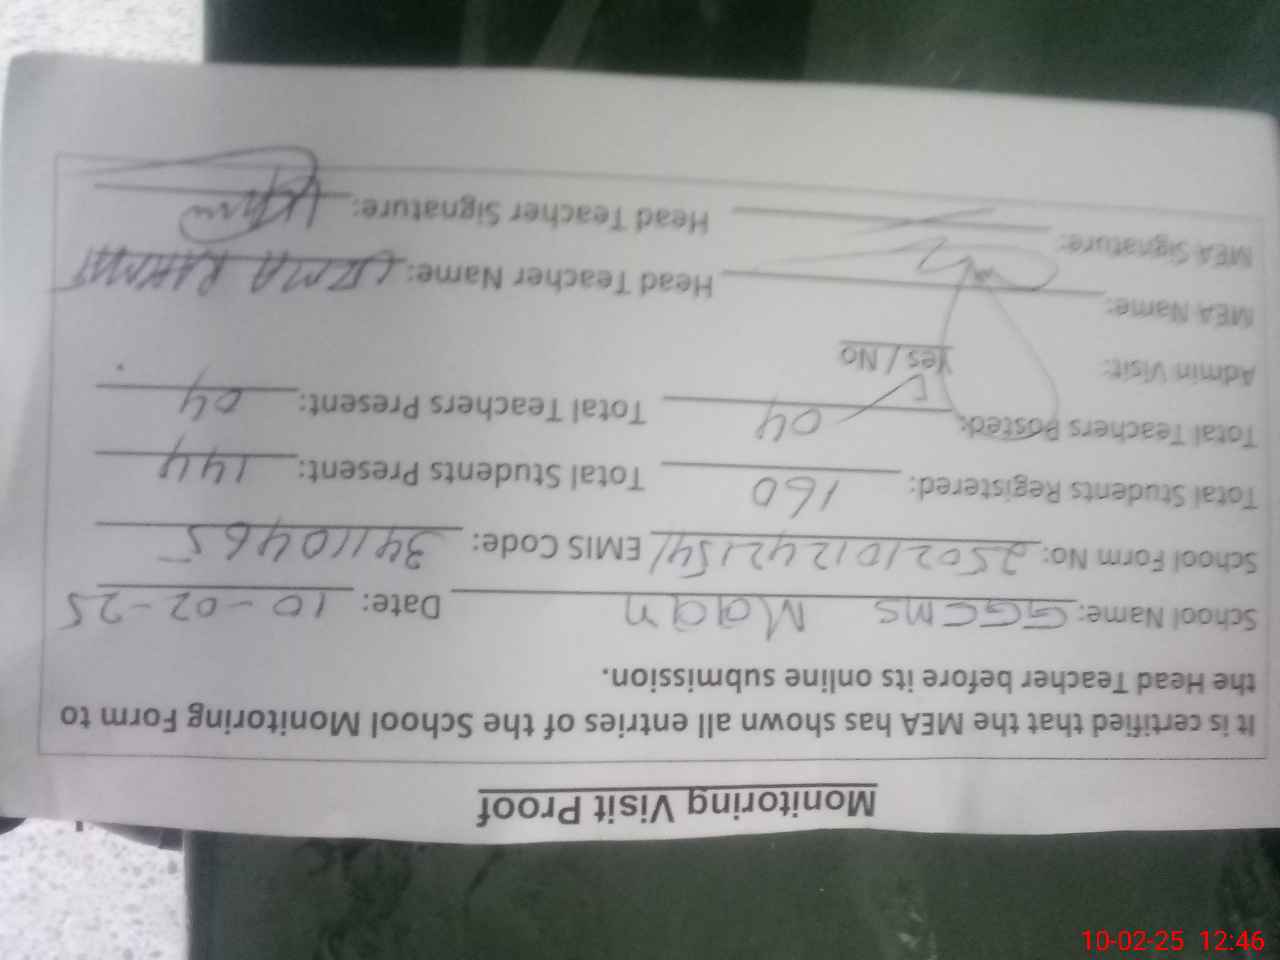 Monitoring Visit Proof
It is certified that the MEA has shown all entries of the School Monitoring Form to
the Head Teacher before its online submission.
School Name: GGCMS Maan Date: 10-02-25
School Form No: 2502101242154/ EMIS Code: 34110465
Total Students Registered: 160 Total Students Present: 144
Total Teachers Posted: 04 Total Teachers Present: 04
Admin Visit: Yes / No
MEA Name: Head Teacher Name: UZMA RAHMAT
MEA Signature: Head Teacher Signature:
10-02-25 12:46